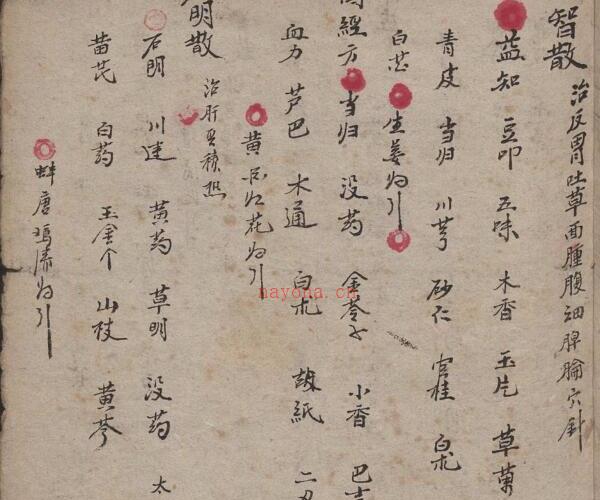 智散 治反胃吐草面腫腹細脾腧穴針
益知 豆叩 五味 木香 玉片 草菓
青皮 当归 川芎 砂仁 官桂 白朮
白芷 生姜为引
經方 当归 没药 金苓子 小香 巴
血力 芦巴 木通 白朮 故紙 二丑
黄 红花为引
明散 治肝 積热
石明 川連 黄药 草明 没药 太
苗芪 白药 玉金个 山枝 黄芩
蚌唐 鸡清为引
nayona.cn